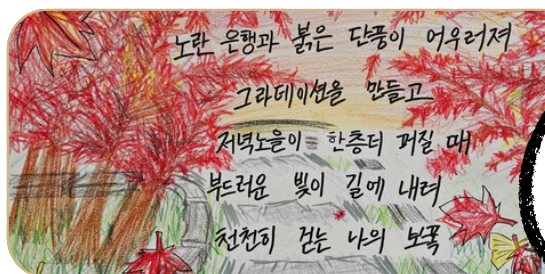 노란 은행과 붉은 단풍이 어우러져
그라데이션을 만들고
저녁노을이 한층더 퍼질 때
부드러운 빛이 길에 내려
천천히 걷는 나의 보폭